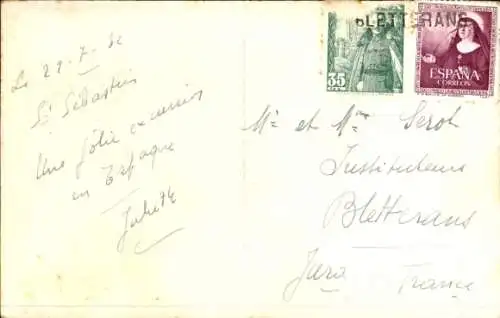 Le 29-7-52
St Sébastien
Une jolie excursion
en Espagne
BLETTERANS
35
ESPAÑA
CORREOS
Mr et Mme Serot
Instituteurs
Bletterans
Jura France